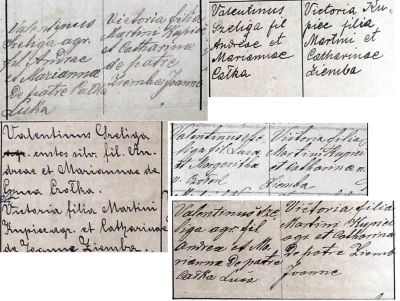 Valentinus
Szeliga agr.
fil. Andrae
et Marianna
De patre Całka
Luca
Victoria filia
Martini Kupiec
et Catharina
de patre
Ziemba Joanne
Valentinus
Szeliga fil
Andreae et
Mariannae
Całka
Victoria Ku-
piec filia
Martini et
Catharinae
Ziemba
Valentinus Szeliga
agr. custos silv. fil. An-
dreae et Mariannae de
Luca Ciołka.
Victoria filia Martini
Kupiec agr. et Catharinae
de Joanne Ziemba.
Valentinus Sze-
liga fil
et Margaritha
Victoria filia
Martini Kupiec
et Catharina n.
Ziemba
Valentinus Sze-
liga agr. fil
Andrea et Ma-
rianna De patre
Całka Luca
Victoria filia
Martini Kupiec
agr. et Catharina
De patre Ziemb
Joanne